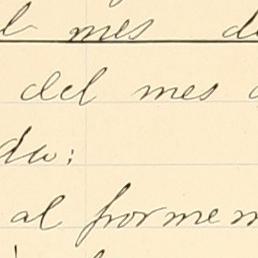 l mes de
del mes d
da:
al pormen